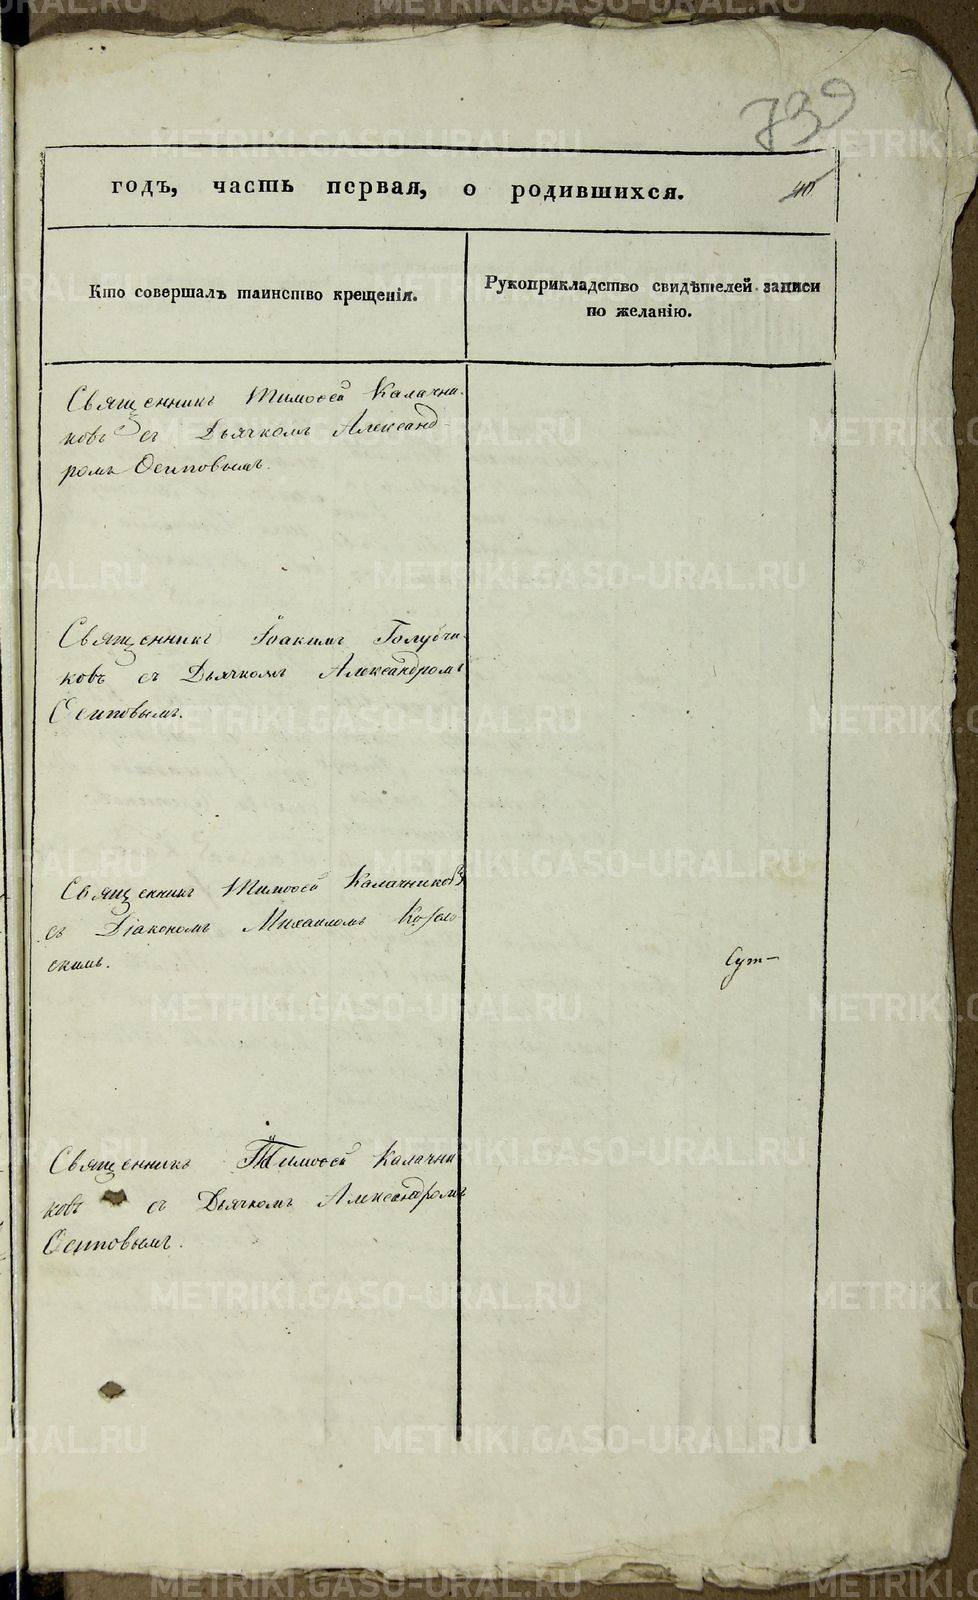 739
годъ, часть первая, о родившихся.
Кто совершалъ таинство крещенія.
Рукоприкладство свидѣтелей записи
по желанію.
Священникъ Тимоѳей Калачни-
ковъ съ Дьячкомъ Александ-
ромъ Осиповымъ.
Священникъ Іоакимъ Голубчи-
ковъ съ Дьячкомъ Александромъ
Осиповымъ.
Священникъ Тимоѳей Калачниковъ
съ Діакономъ Михаиломъ
скимъ.
Священникъ Тимоѳей Калачни
ковъ съ Дьячкомъ Александромъ
Осиповымъ.
METRIKI.GASO-URAL.RU